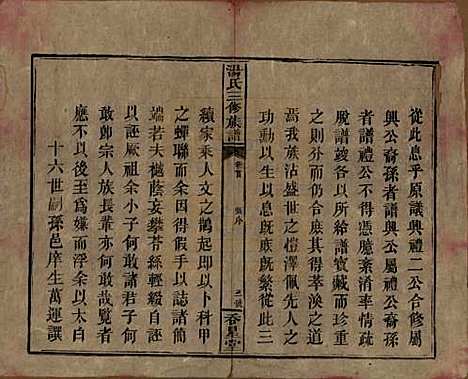 從此息乎原議興禮二公合修屬
興公裔孫者譜興公屬禮公裔孫
者譜禮公不得憑臆紊消事情疏
脫譜竣各以所給譜寶藏而珍重
之則分而仍合庶其得萃渙之道
焉我族沾盛世之愷澤佩先人之
功勳生生以息既庶既繁從此三
湯氏三修族譜
卷首
吞星堂
續家乘人文之鵲起即以卜科甲
之蟬聯而余因得假手以誌諸簡
端若夫樾蔭妄攀荅絲輕綴自誣
以誣厥祖余小子何敢諸君子何
敢鄭宗何敢族長輩亦何敢故覽者
應不以後至為嫌而浮余以大白
十六世嗣孫邑庠生萬運譔